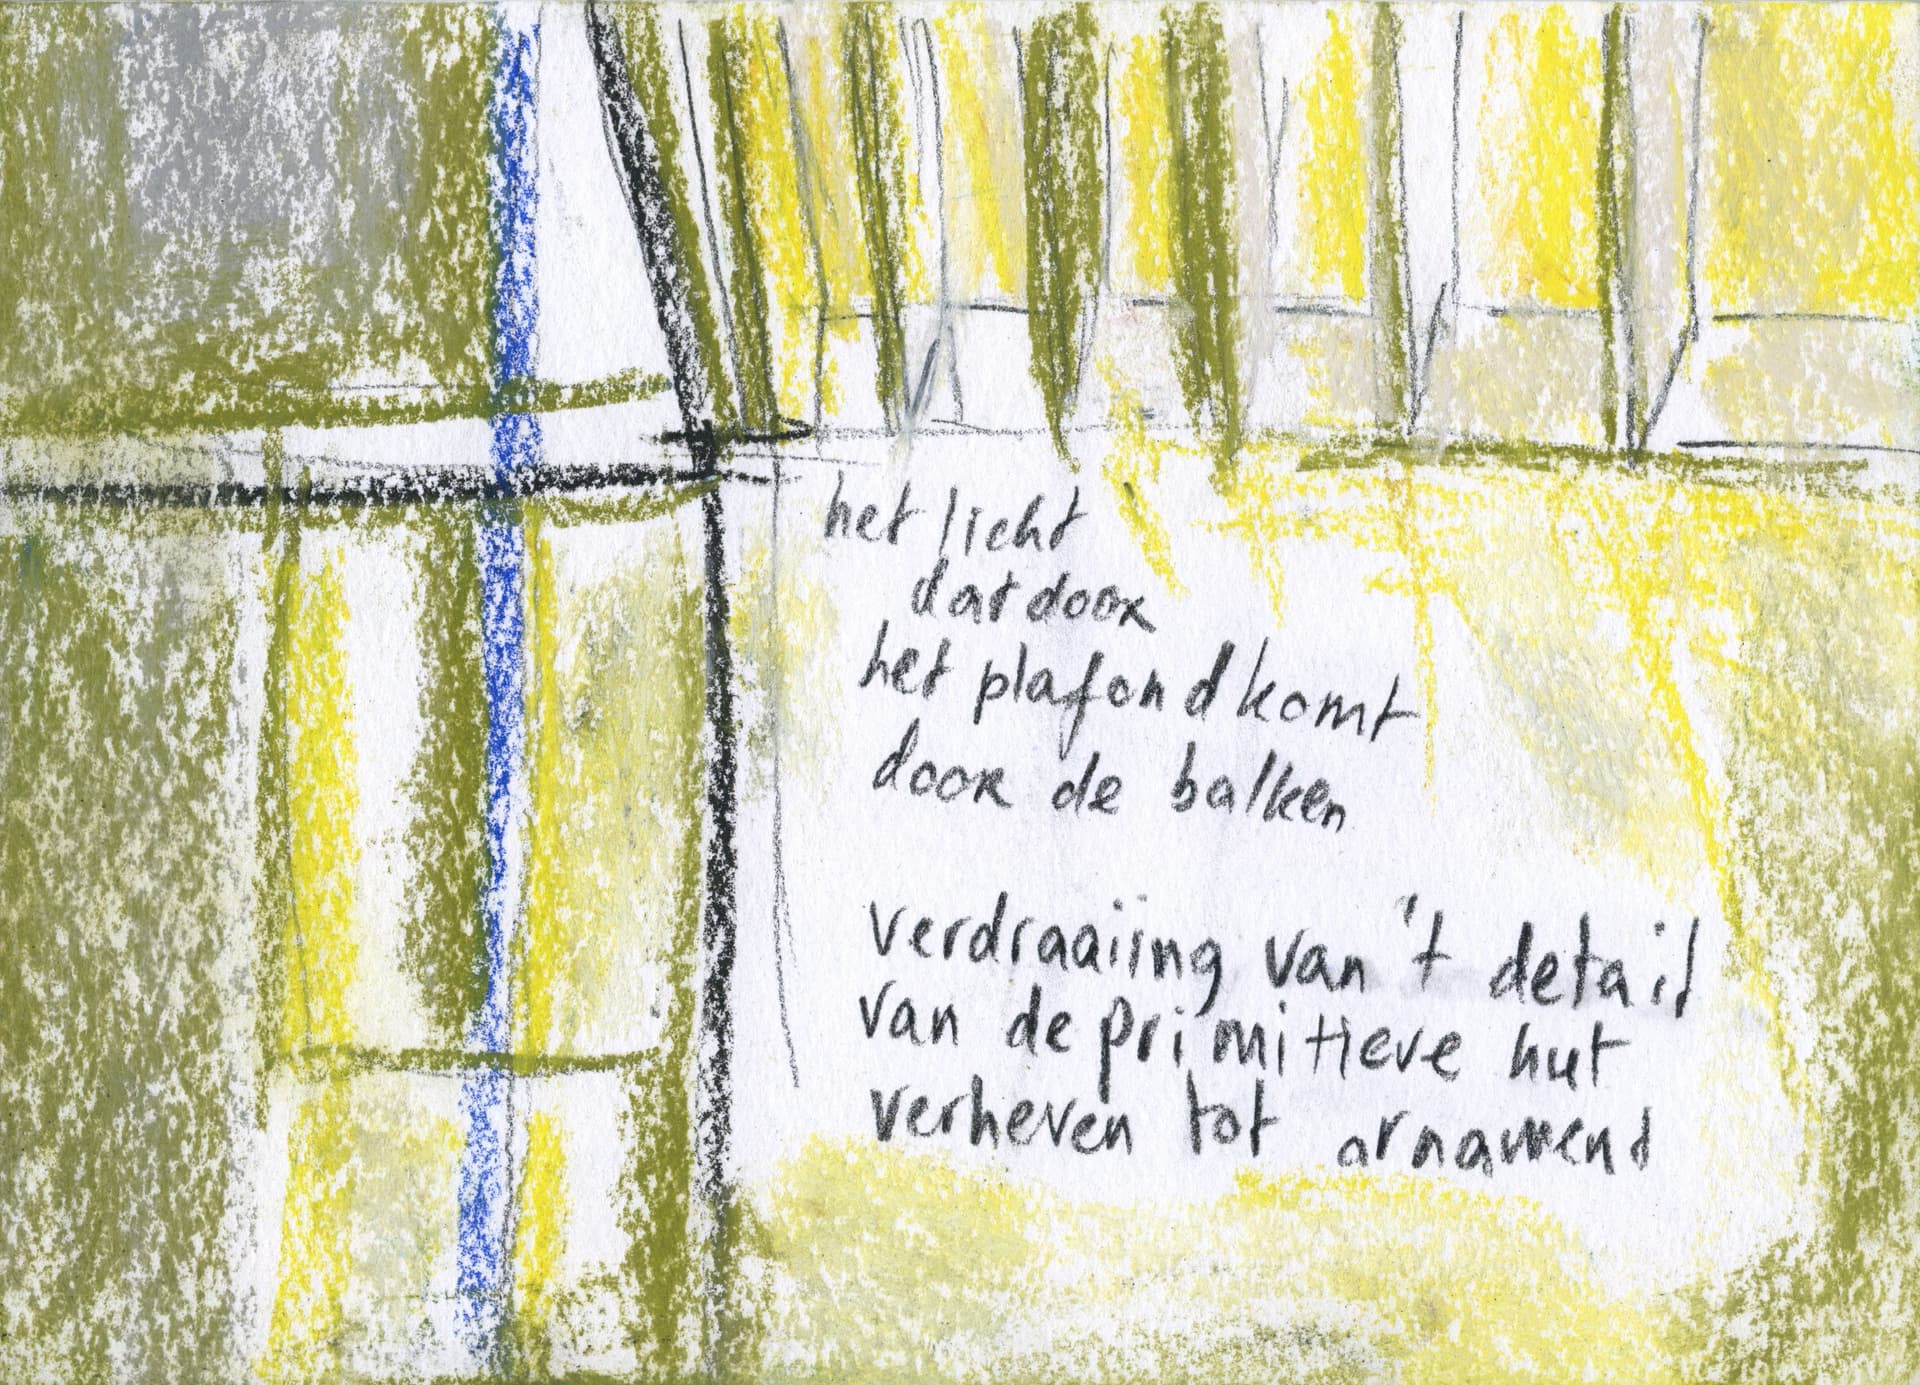 het licht
dat door
het plafond komt
door de balken
verdraaiing van 't detail
van de primitieve hut
verheven tot ornamend